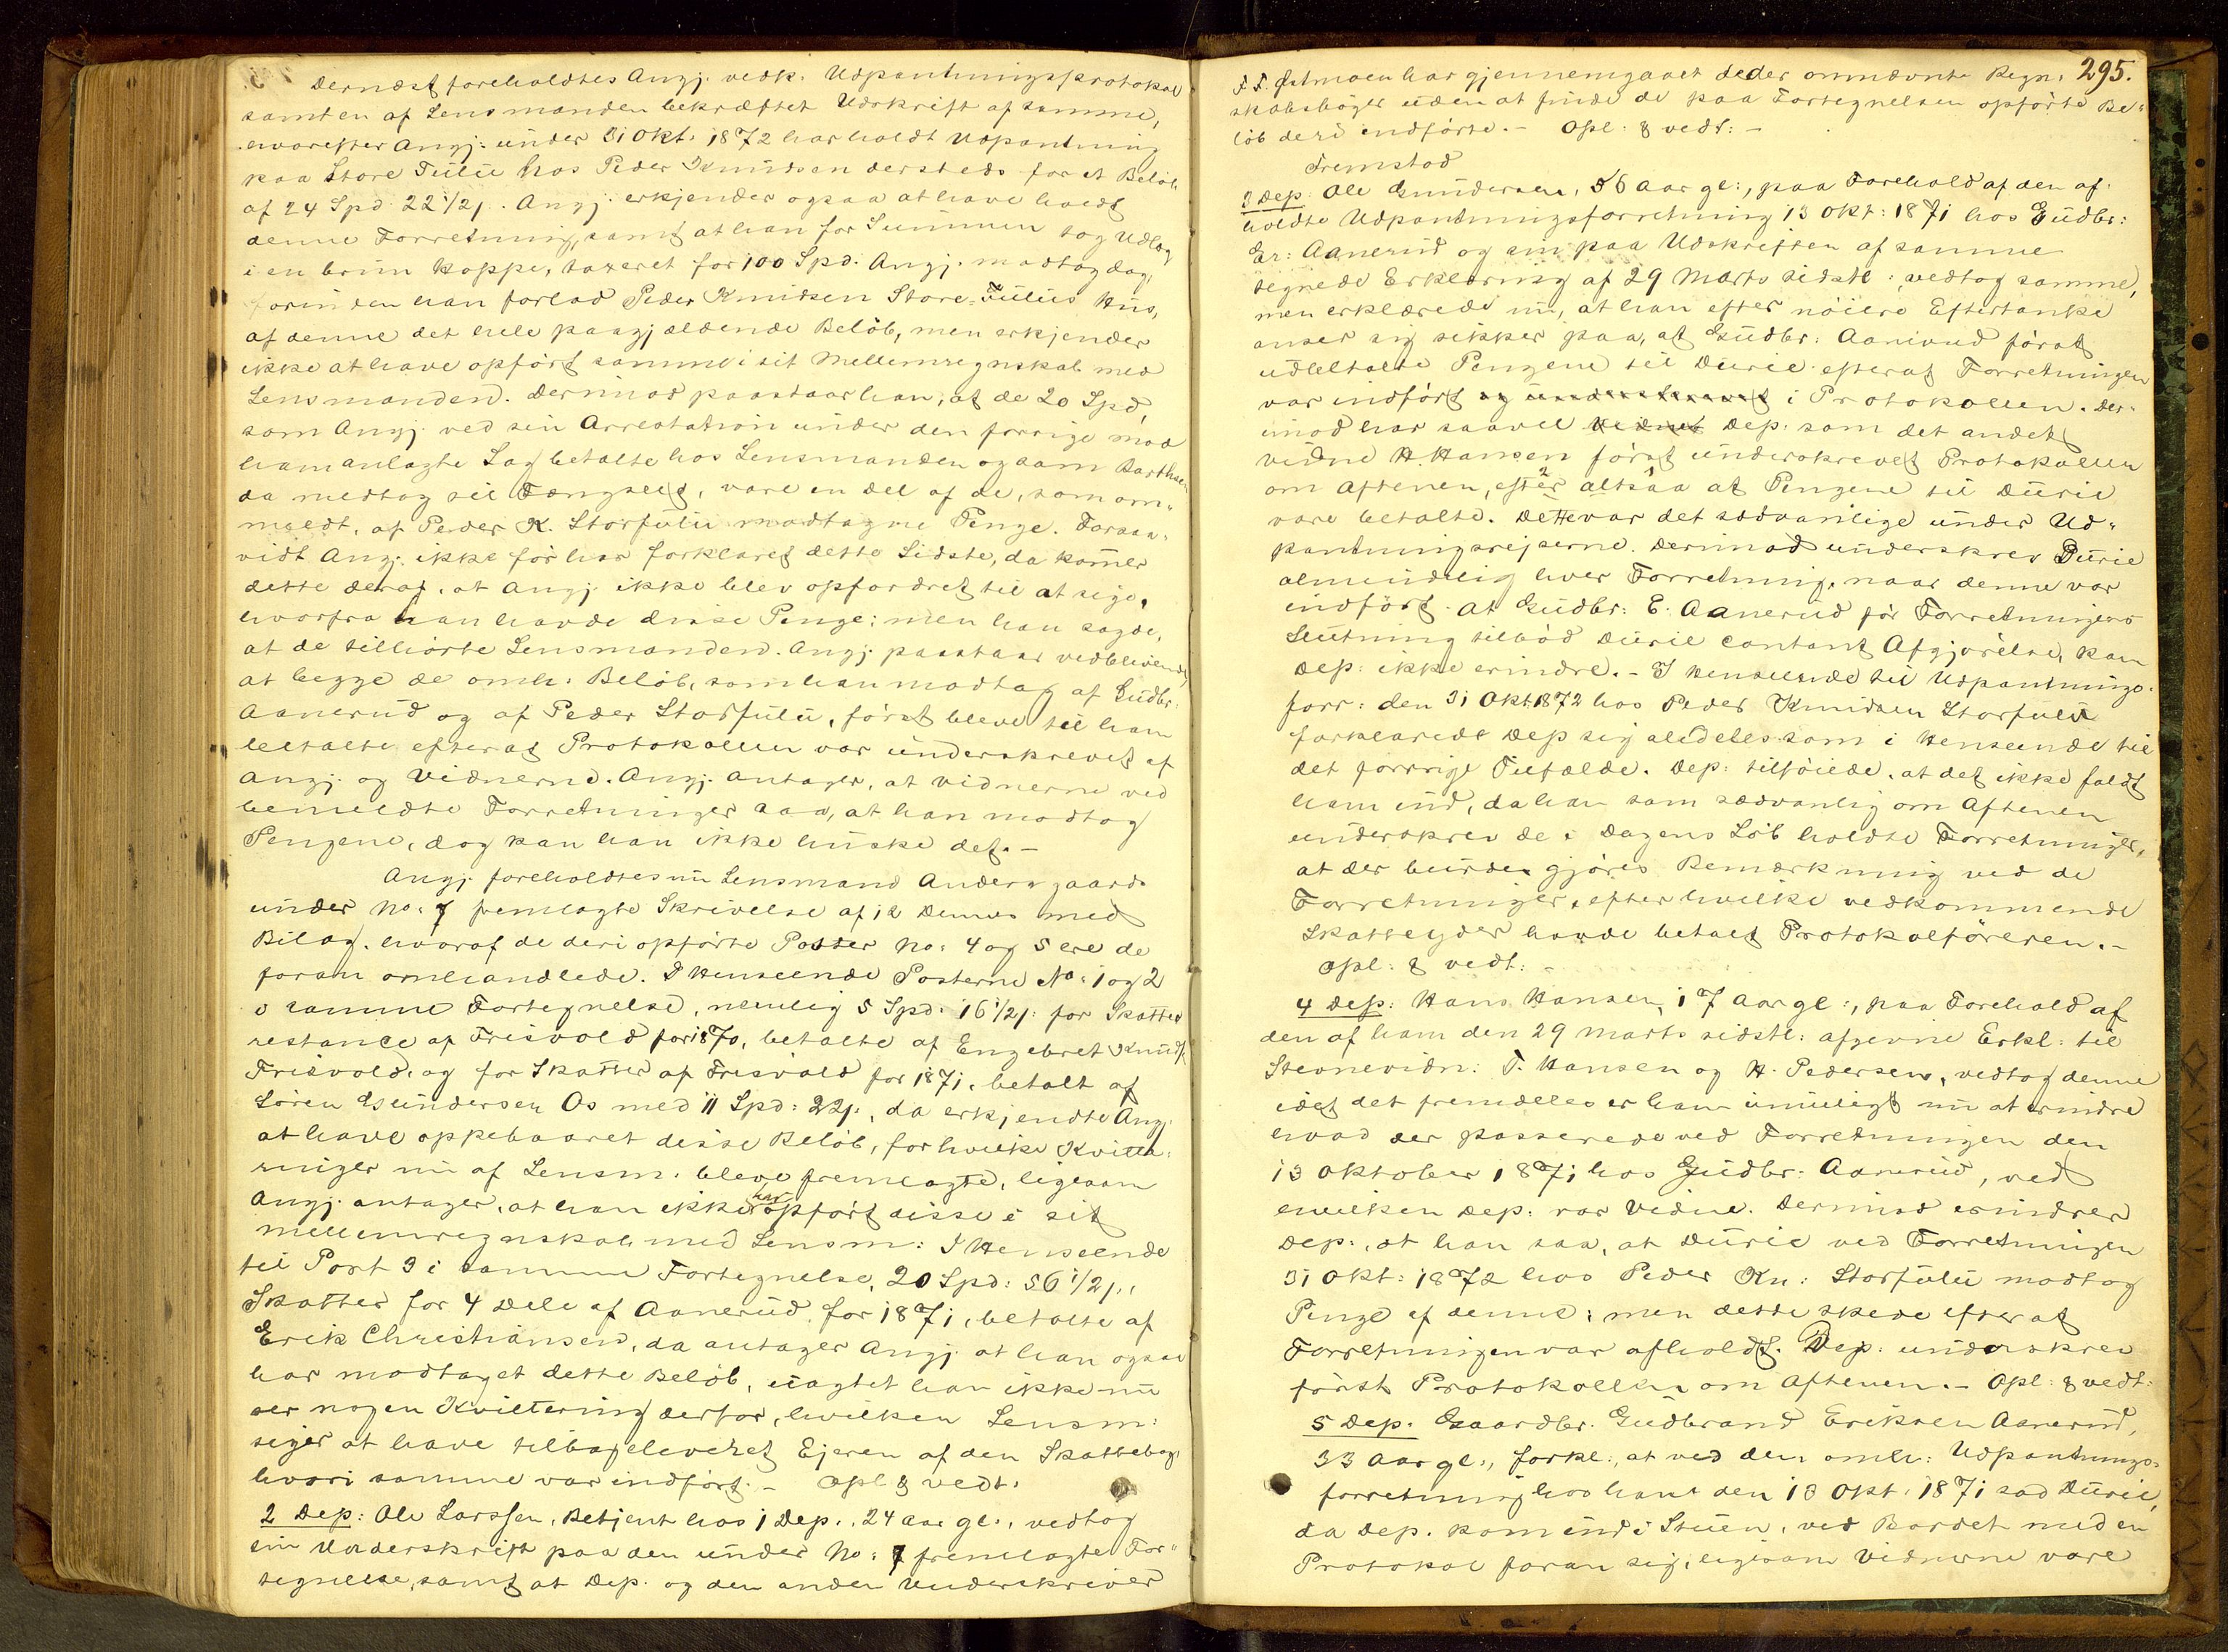 Dernæst foreholdtes Angj. vedk. Udpantningsprotokol
samt en af Lensmanden bekræftet Udskrift af samme,
hvorefter Angj: under 31 Okt. 1872 har holdt Udpantning
paa Store Fulu hos Peder Knudsen dersteds for et Beløb
af 24 Spd 22 1/2 ß. Angj. erkjender ogsaa at have holdt
denne Forretning, samt at han for Summen tog Udlæg
i en brun Hoppe, taxeret for 100 Spd. Angj. modtog dog,
forinden han forlod Peder Knudsen Store-Fulus Hus,
af denne det hele paagjældende Beløb, men erkjender
ikke at have opført samme i sit Mellemregnskab med
Lensmanden. Derimod paastaar han, at de 20 Spd,
som Angj. ved sin Arrestation under den forrige mod
ham anlagte Sag betalte hos Lensmanden og som Barthsen
da medtog til Fængslet, vare en Del af de, som om-
meldt, af Peder K. Storfulu modtagne Penge. Forsaa-
vidt Angj. ikke før har forklaret dette Sidste, da kommer
dette deraf, at Angj. ikke blev opfordret til at sige,
hvorfra han havde disse Penge; men han sagde,
at de tilhørte Lensmanden. Angj. paastaar vedblivende,
at begge de omh. Beløb, som han modtog af Gudbr:
Aanerud og af Peder Storfulu, først bleve til ham
betalte efterat Protokollen var underskrevet af
Angj. og Vidnerne. Angj. antager, at Vidnerne ved
bemeldte Forretninger saa, at han modtog
Pengene, dog kan han ikke huske det. –
Angj. foreholdtes nu Lensmand Andersgaards
under No: 7 fremlagte Skrivelse af 12 Dennes med
Bilag, hvoraf de deri opførte Poster No: 4 og 5 ere de
foran omhandlede. I Henseende Posterne No: 1 og 2
i samme Fortegnelse, nemlig 5 Spd: 16 1/2 ß: for Skatte
restance af Frisvold for 1870, betalte af Engebret Knuds.
Frisvold, og for Skatter af Frisvold for 1871, betalt af
Søren Gundersen Os med 11 Spd: 22 ß., da erkjendte Angj.
at have oppebaaret disse Beløb, for hvilke Kvitte-
ringer nu af Lensm. bleve fremlagte, ligesom
Angj. antager, at han ikke har opført disse i sit
Mellemregnskab med Lensm: I Henseende
til Post 3 i samme Fortegnelse, 20 Spd: 56 1/2 ß.,
Skatter for 4 Dele af Aanerud for 1871, betalte af
Erik Christiansen, da antager Angj. at han ogsaa
har modtaget dette Beløb, uagtet han ikke nu
ser nogen Kvittering derfor, hvilken Lensm:
siger at have tilbageleveret Ejeren af den Skattebog,
hvori samme var indført. – Opl: & vedt.
2 Dep: Ole Larssen, Betjent hos 1 Dep., 24 Aar gl., vedtog
sin Underskrift paa den under No: 7 fremlagte For-
tegnelse, samt at Dep. og den anden Underskriver
295.
F. F. Østmoen har gjennemgaaet de der omnævnte Regn-
skabsbøger uden at finde de paa Fortegnelsen opførte Be-
løb deri indførte. – Opl: & vedt: –
Fremstod
3 Dep: Ole Gundersen, 56 Aar gl:, paa Forehold af den af-
holdte Udpantningsforretning 13 Okt: 1871 hos Gudbr:
Er: Aanerud og sin paa Udskriften af samme
tegnede Erklæring af 29 Marts sidstl:, vedtog samme,
men erklærede nu, at han efter nøiere Eftertanke
anser sig sikker paa, at Gudbr: Aanerud først
udbetalte Pengene til Durie efterat Forretningen
var indført og underskrevet i Protokollen. Der-
imod har saavel Vidnet Dep. som det andet
Vidne H. Hansen først underskrevet Protokollen
om Aftenen, efter altsaa at Pengene til Durie
vare betalte. Dette var det sædvanlige under Ud-
pantningsrejserne. Derimod underskrev Durie
almindelig hver Forretning, naar denne var
indført. At Gudbr: E. Aanerud før Forretningens
Slutning tilbød Durie contant Afgjørelse, kan
Dep: ikke erindre. – I Henseende til Udpantnings-
forr: den 31 Okt. 1872 hos Peder Knudsen Storfulu
forklarede Dep sig aldeles som i Henseende til
det forrige Tilfælde. Dep: tilføiede, at det ikke faldt
ham ind, da han som sædvanlig om Aftenen
underskrev de i Dagens Løb holdte Forretninger,
at der burde gjøres Bemærkning ved de
Forretninger, efter hvilke vedkommende
Skatteyder havde betalt Protokolføreren. –
Opl: & vedt: –
4 Dep: Hans Hansen, 17 Aar gl:, paa Forehold af
den af ham den 29 Marts sidstl: afgivne Erkl: til
Stevnevidn: T. Hansen og H. Pedersen, vedtog denne
idet det fremdeles er ham umuligt nu at erindre
hvad der passerede ved Forretningen den
13 Oktober 1871 hos Gudbr: Aanerud, ved
hvilken Dep: var Vidne. Derimod erindrer
Dep:, at han saa, at Durie ved Forretningen
31 Okt: 1872 hos Peder Kn: Storfulu modtog
Penge af denne; men dette skede efterat
Forretningen var afholdt. Dep: underskrev
først Protokollen om Aftenen. – Opl: & vedt:
5 Dep. Gaardbr. Gudbrand Eriksen Aanerud,
33 Aar gl:, forkl:, at ved den omh: Udpantnings-
forretning hos ham den 13 Okt. 1871 sad Durie,
da Dep. kom ind i Stuen, ved Bordet med en
Protokol foran sig, ligesom Vidnerne vare